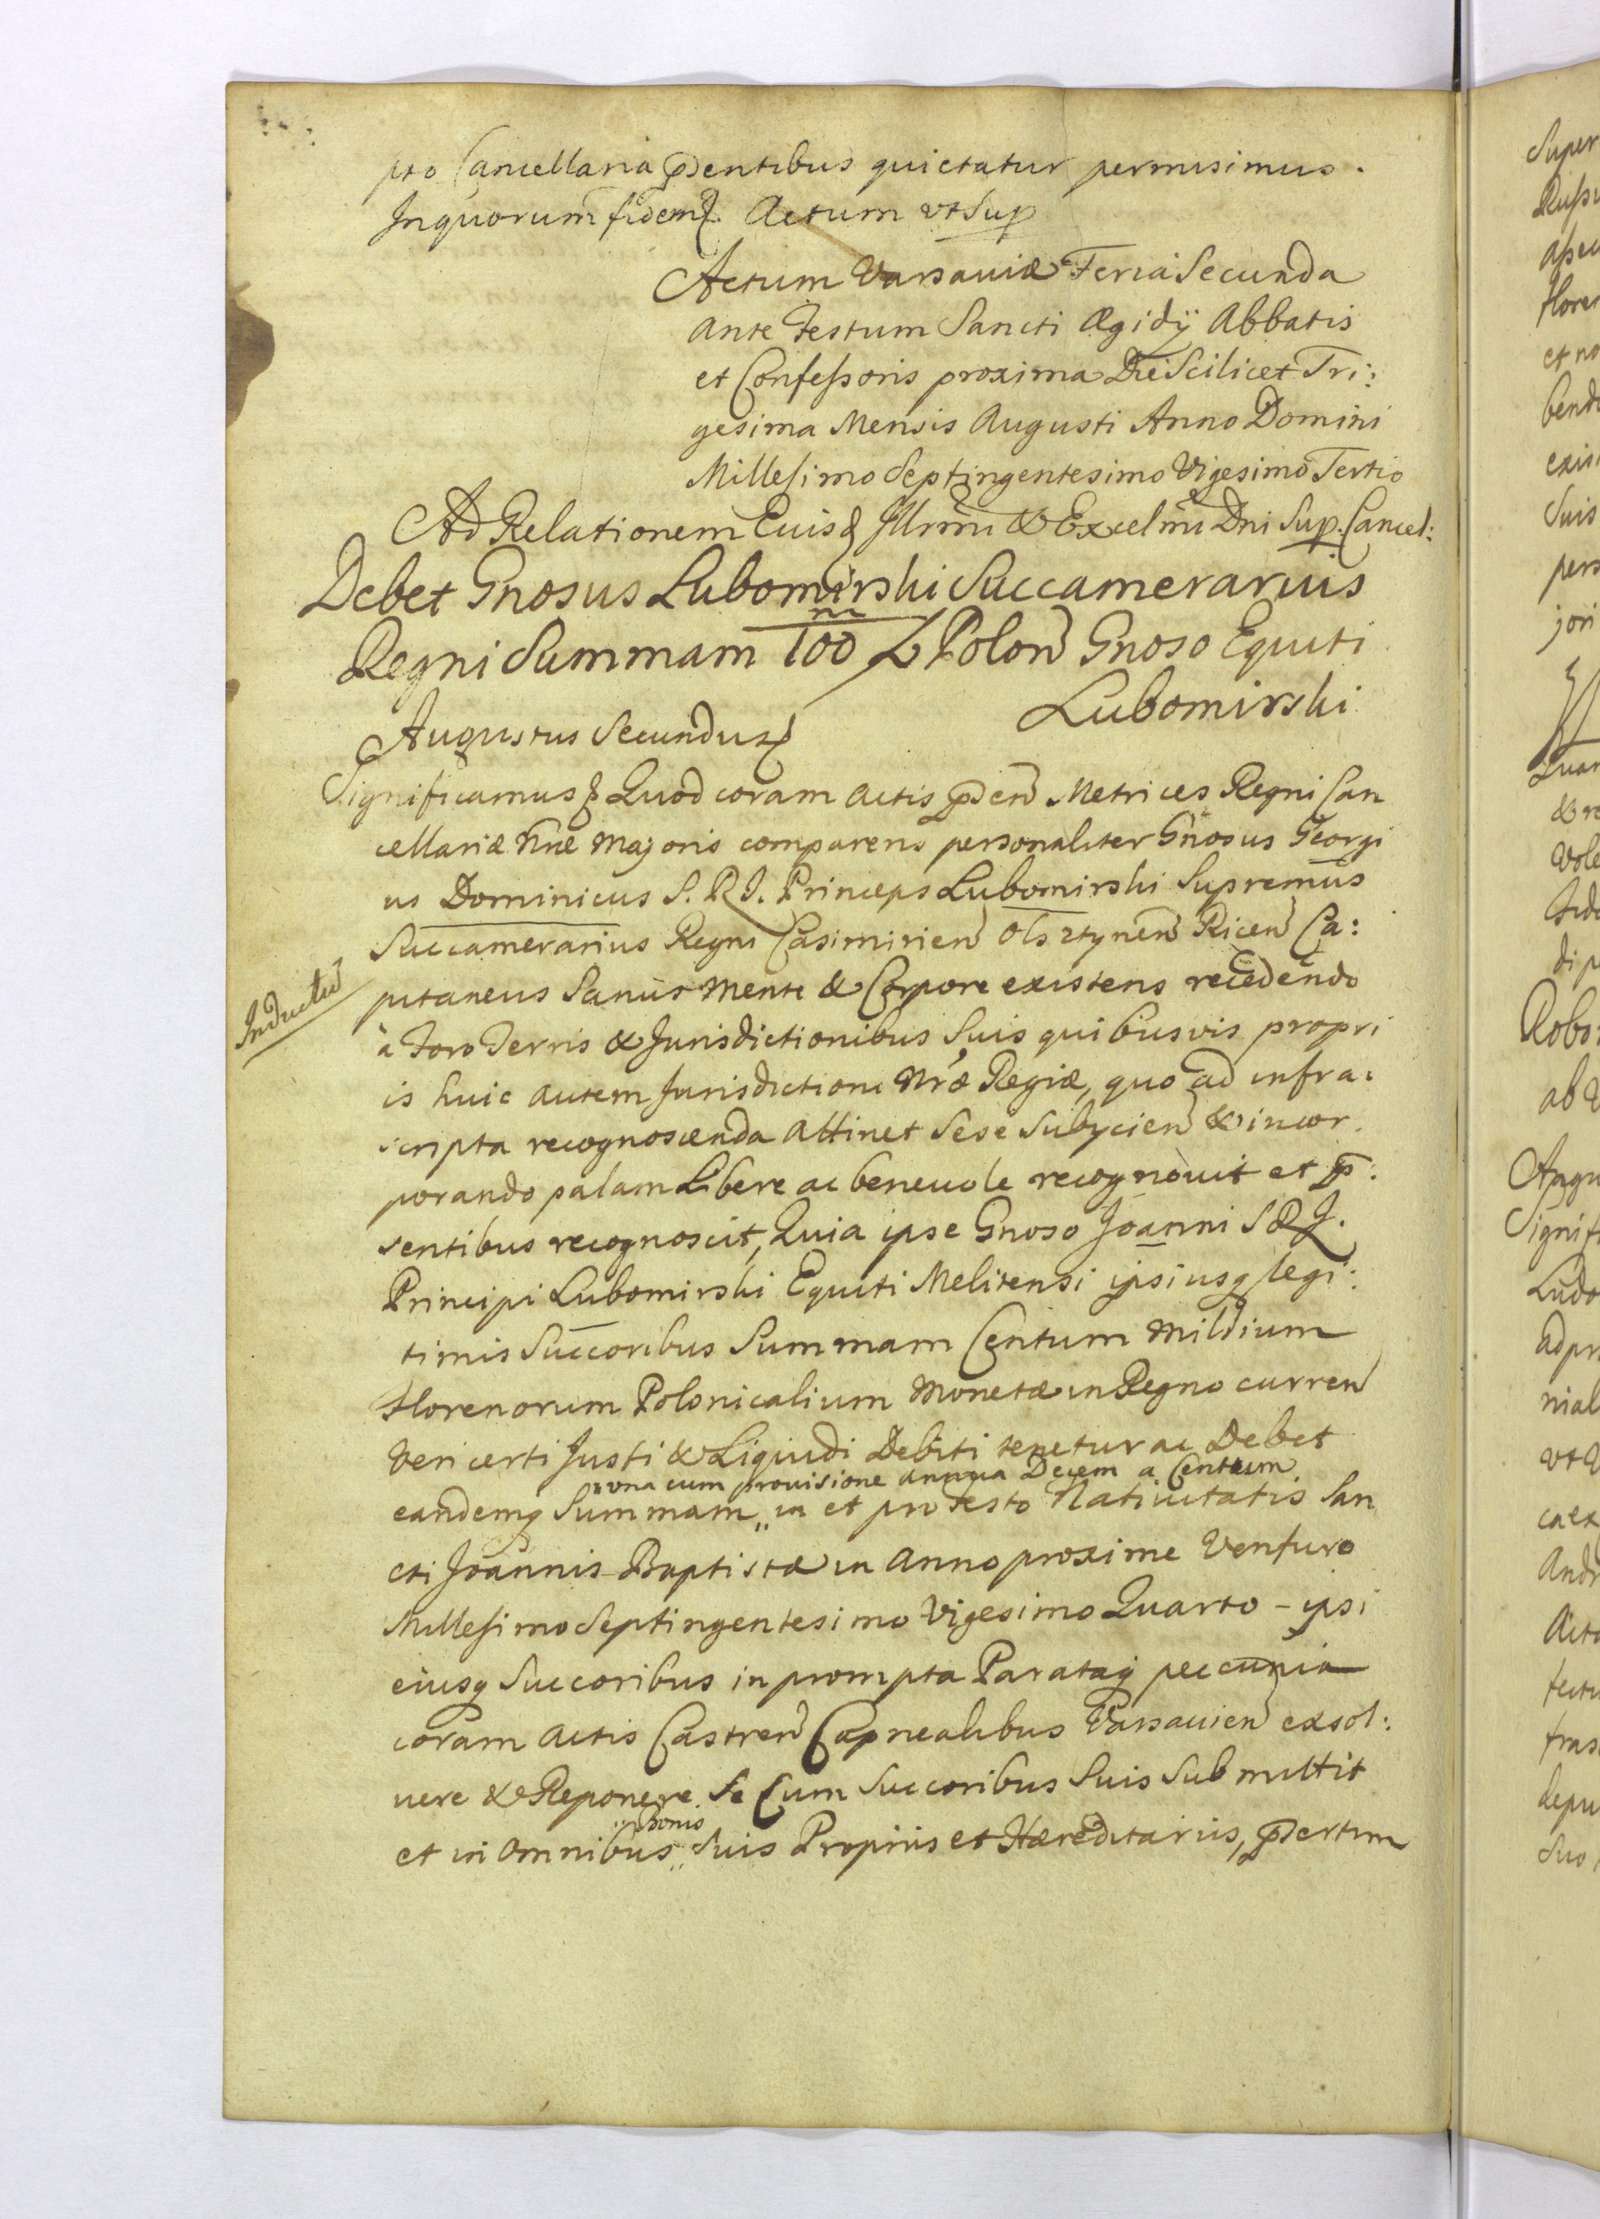 pro Cancellaria pntibus quietatur permisimus.
Inquorum fidem. Actum vt Sup
Actum Varsaviæ Feria Secunda
ante Festum Sancti Ægidÿ Abbatis
et Confessoris proxima Die Scilicet Tri:
gesima Mensis Augusti Anno Domini
Millesimo Septingentesimo Vigesimo Tertio
Ad Relationem Eiusd Illrmi & Excelmi Dni Sup. Cancel:
Debet Gnosus Lubomirski Succamerarius
Regni Summam 100 m f Polon Gnoso Equiti
Lubomirski
Augustus Secundus
Significamus Quod coram Actis pnden Metrices Regni Can
cellariæ Nræ Majoris comparens personaliter Gnosus Georgi
us Dominicus S. R I. Princeps Lubomirski Supremus
Succamerarius Regni Casimirien Olsztynen Ricen Ca:
Inductu
pitaneus Sanus Mente & Corpore existens recedendo
à Foro Terris & Jurisdictionibus Suis quibusvis propri
is huic autem Jurisdictioni Nræ Regiæ, quo ad infra:
scripta recognoscenda attinet Sese Subycien & incor
porando palam Libere ac benevole recognovit et p:
sentibus recognoscit, Quia ipse Gnoso Joanni S R J.
Principi Lubomirski Equiti Melitensi ipsiusq legi:
timis Succoribus Summam Centum Millium
Florenorum Polonicalium Monetæ in Regno curren
Veri certi Justi & Liquidi Debiti tenetur ac Debet
una cum provisione annua Decem a Centum
eandemq Summam,, in et pro Festo Nativitatis San
cti Joannis Baptistæ in Anno proxime Venturo
Millesimo Septingentesimo Vigesimo Quarto - ipsi
eiusq Succoribus in prompta Parataq peccunia
coram Actis Castren Capnealibus Varsavien exsol:
vere & Reponere Se Cum Succoribus Suis Submittit
Bonis
et in omnibus,, Suis Propriis et Hæreditariis, psertim